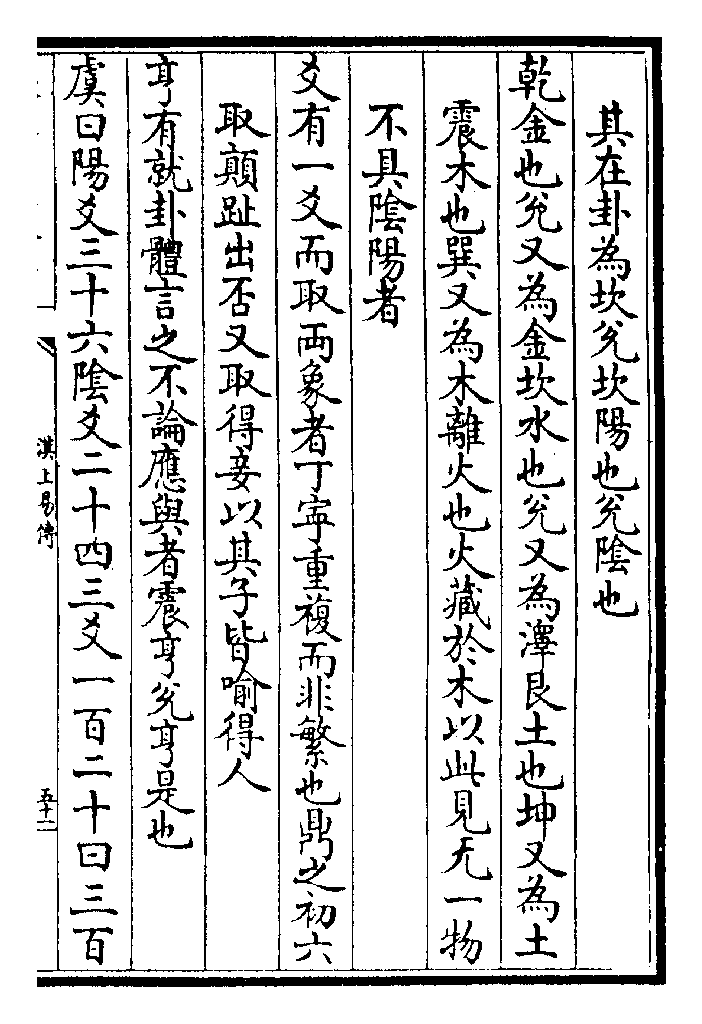 其在卦為坎兊坎陽也兊隂也
乾金也兊又為金坎水也兊又為澤艮土也坤又為土
震木也巽又為木離火也火藏於木以此見无一物
不具隂陽者
爻有一爻而取兩象者丁寧重複而非繁也鼎之初六
取顛趾出否又取得妾以其子皆喻得人
亨有就卦體言之不論應與者震亨兊亨是也
虞曰陽爻三十六隂爻二十四三爻一百二十曰三百
漢上易傳
五十一